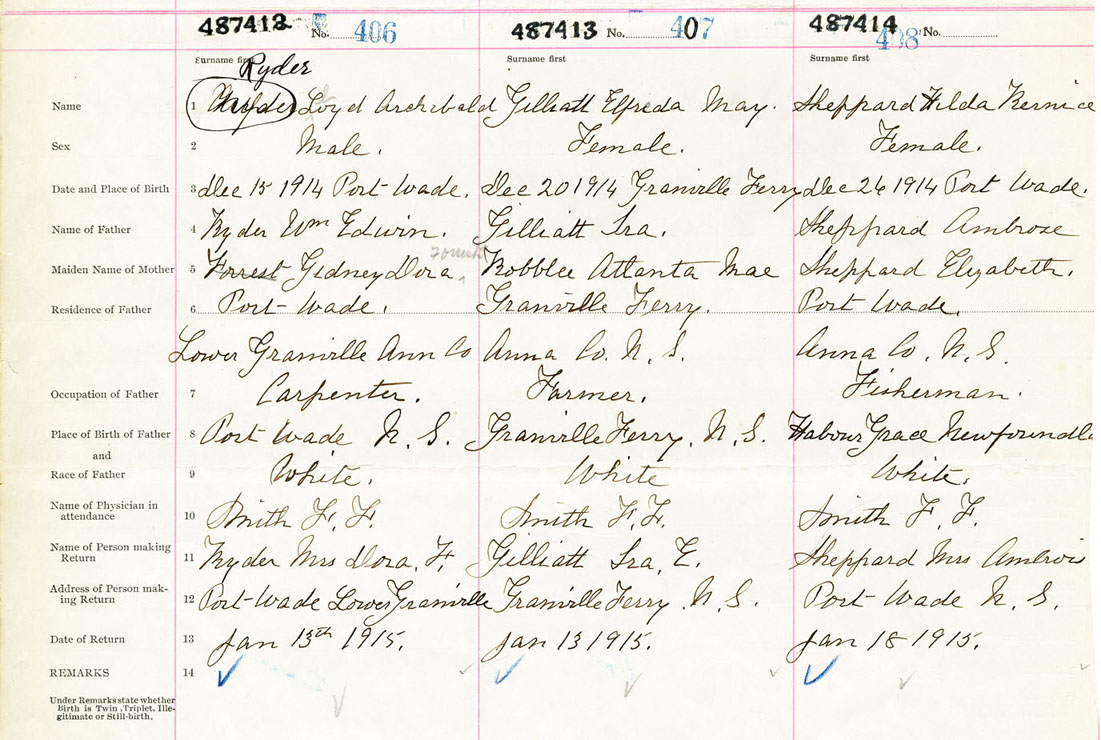 487412 No. 406 487413 No. 407 487414 408 No.
Surname first Surname first Surname first
Ryder
Name 1 Loyd Archibald Gilliatt Elfreda May. Sheppard Hilda Bernice
Sex 2 Male. Female. Female.
Date and Place of Birth 3 Dec 15 1914 Port Wade. Dec 20 1914 Granville Ferry Dec 26 1914 Port Wade.
Name of Father 4 Ryder Wm Edwin. Gilliatt Ira. Sheppard Ambrose
Forrest
Maiden Name of Mother 5 Forrest Gidney Dora Robblee Atlanta Mae Sheppard Elizabeth.
Residence of Father 6 Port Wade. Granville Ferry. Port Wade.
Lower Granville Ann Co Anna Co. N. S. Anna Co. N. S.
Occupation of Father 7 Carpenter. Farmer. Fisherman.
Place of Birth of Father 8 Port Wade N. S. Granville Ferry. N. S. Habour Grace Newfoundla
and
Race of Father 9 White. White White.
Name of Physician in
attendance 10 Smith F. F. Smith F. F. Smith F. F.
Name of Person making
Return 11 Ryder Mrs Dora. F. Gilliatt Ira. E. Sheppard Mrs Ambrois
Address of Person mak-
ing Return 12 Port Wade Lower Granville Granville Ferry. N. S. Port Wade N. S.
Date of Return 13 Jan 13th 1915. Jan 13 1915. Jan 18 1915.
REMARKS 14
Under Remarks state whether
Birth is Twin, Triplet, Ille-
gitimate or Still-birth.